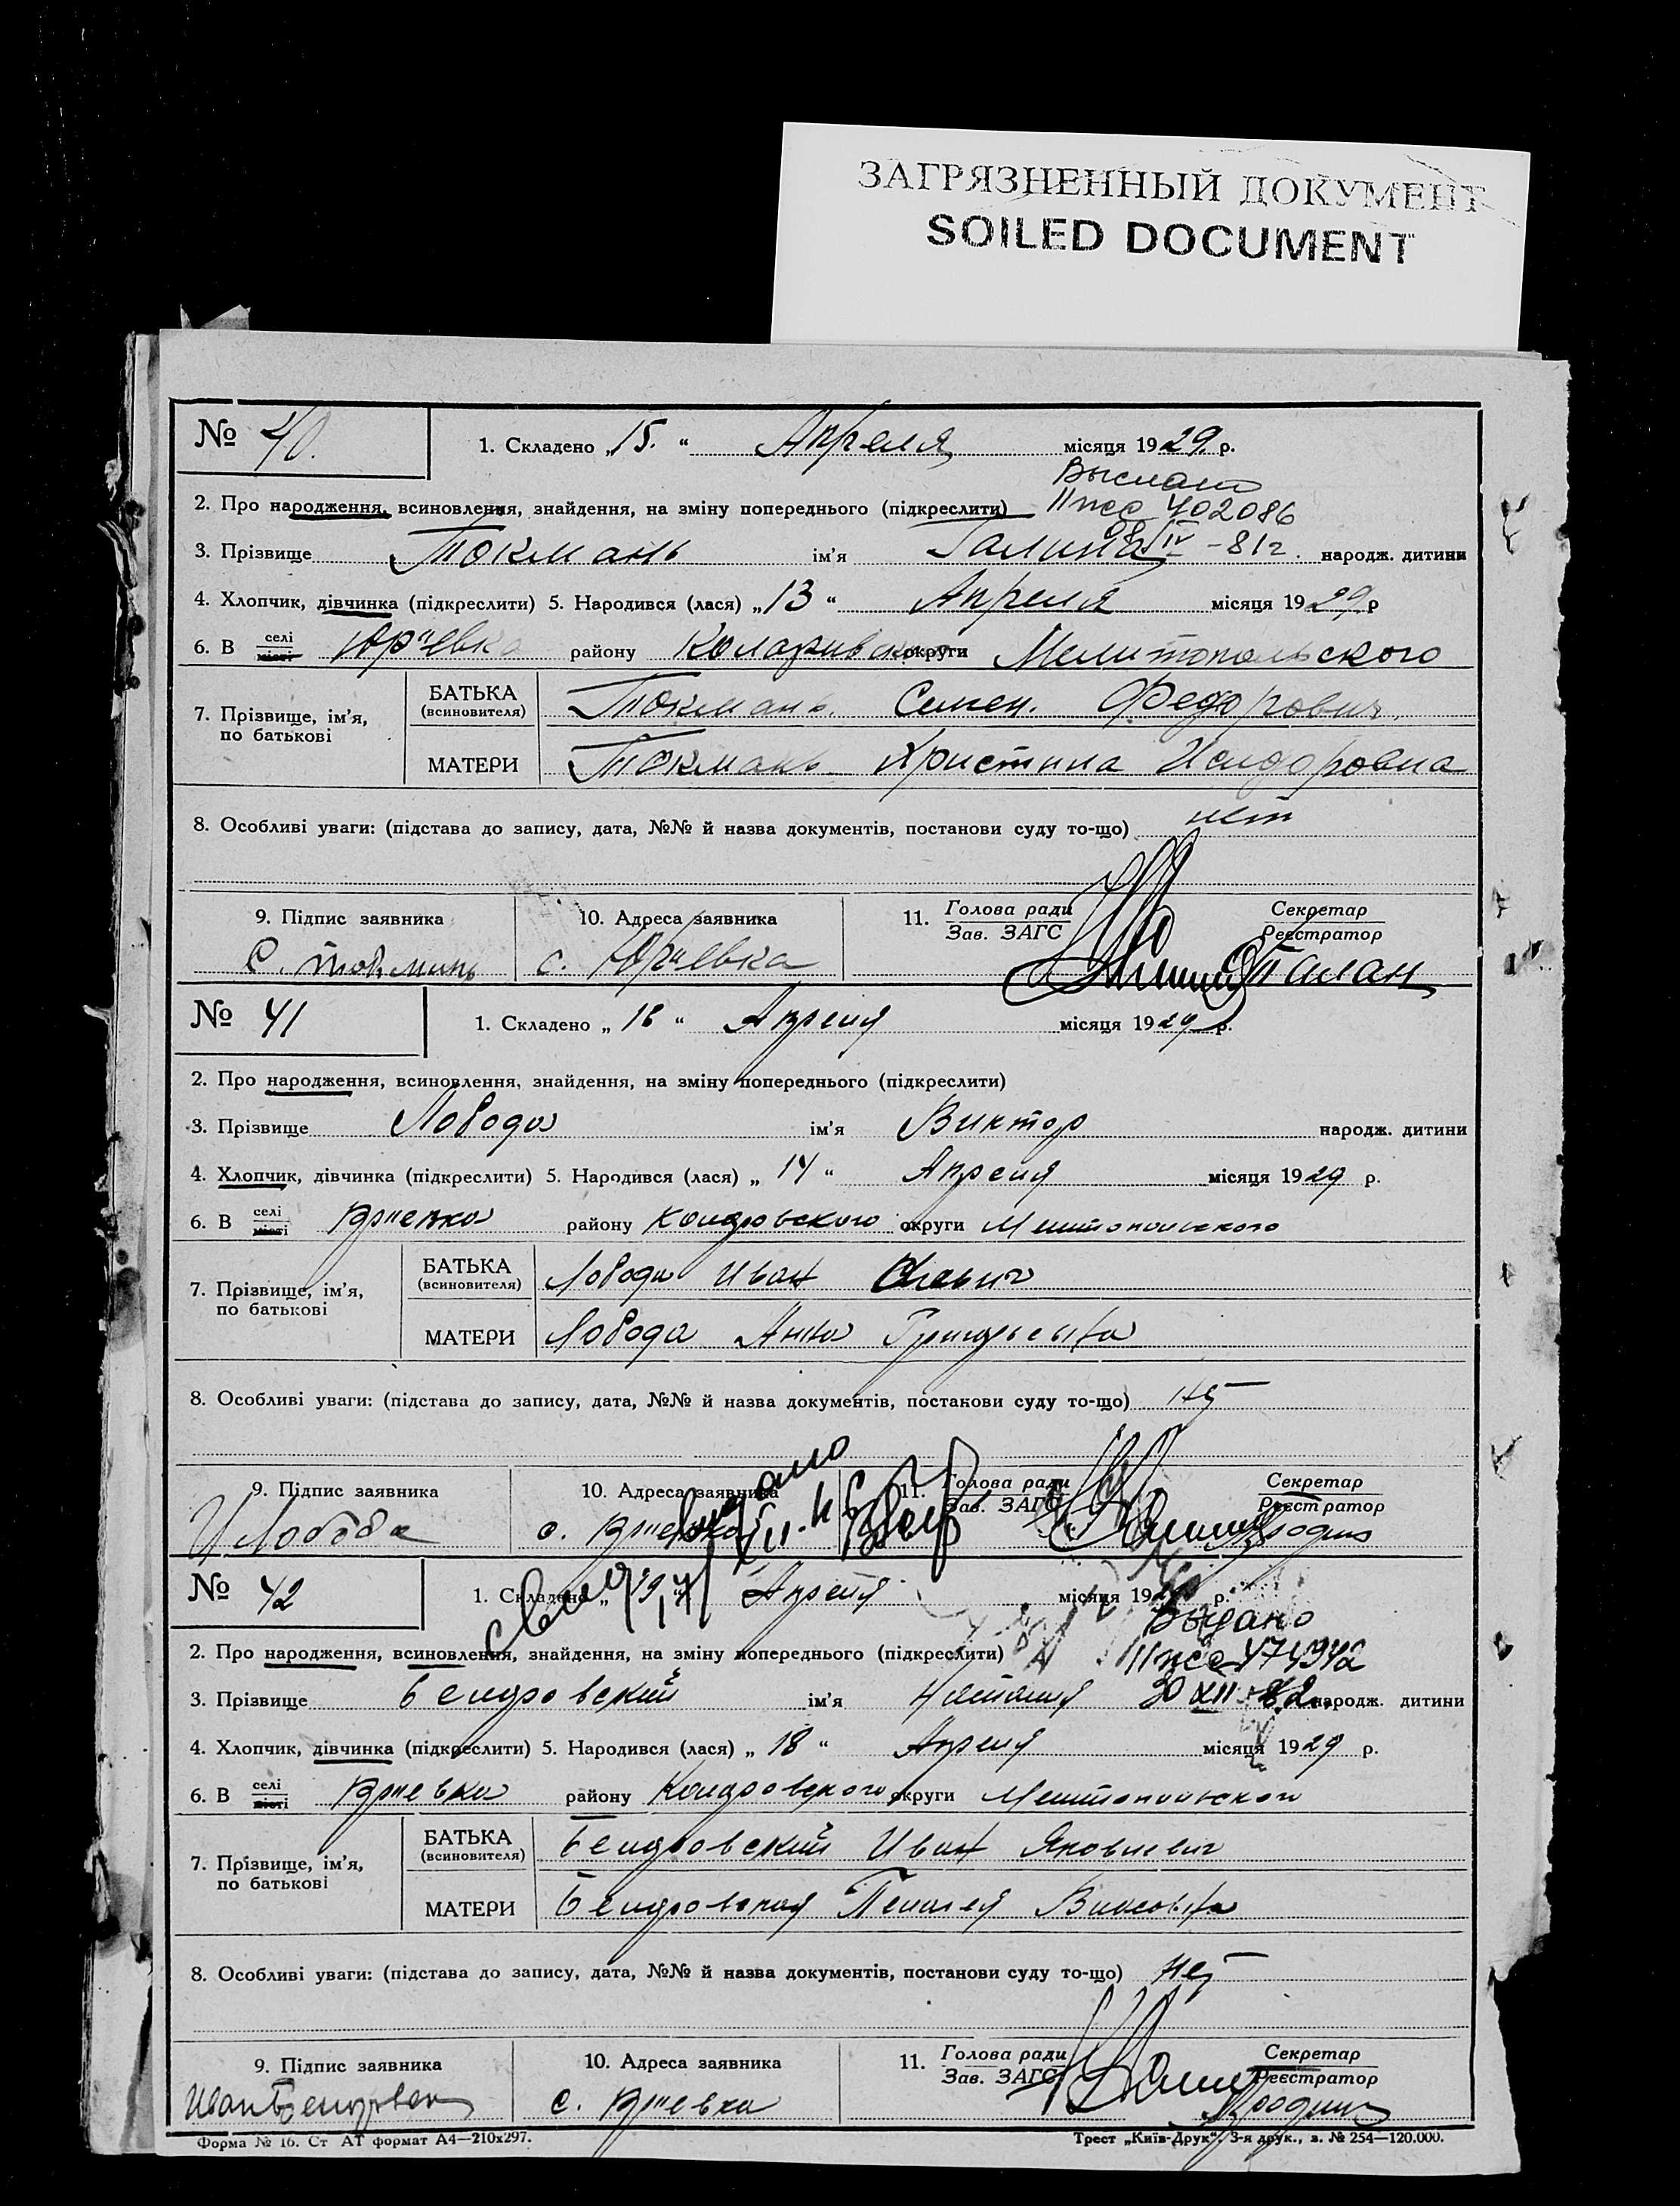 ЗАГРЯЗНЕННЫЙ ДОКУМЕНТ
SOILED DOCUMENT
№ 40. 1. Складено „15.“ Апреля місяця 1929. р.
2. Про народження, всиновлення, знайдення, на зміну попереднього (підкреслити)
402086
3. Прізвище Токмань ім'я Галина IV -81г. народж. дитини
4. Хлопчик, дівчинка (підкреслити) 5. Народився (лася) „13“ Апреля місяця 1929 р
6. В селі місті Юрʼевка району округи Мелитопольского
7. Прізвище, ім'я, по батькові
БАТЬКА (всиновителя) Токмань. Семен. Федорович.
МАТЕРИ Токмань Христина Исидоровна
8. Особливі уваги: (підстава до запису, дата, №№ й назва документів, постанови суду то-що) нет
9. Підпис заявника 10. Адреса заявника 11. Голова ради Зав. ЗАГС Секретар Реєстратор
С. Токмань с. Юрʼевка Талан
№ 41 1. Складено „16“ Апреля місяця 1929 р.
2. Про народження, всиновлення, знайдення, на зміну попереднього (підкреслити)
3. Прізвище Лобода ім'я Виктор народж. дитини
4. Хлопчик, дівчинка (підкреслити) 5. Народився (лася) „14“ Апреля місяця 1929 р.
6. В селі місті Юрʼевка району округи Мелитопольского
7. Прізвище, ім'я, по батькові
БАТЬКА (всиновителя) Лобода Иван
МАТЕРИ Лобода Анна Григорьевна
8. Особливі уваги: (підстава до запису, дата, №№ й назва документів, постанови суду то-що) нет
9. Підпис заявника 10. Адреса заявника 11. Голова ради Зав. ЗАГС Секретар Реєстратор
И Лобода с. Юрʼевка
№ 42 1. Складено „19“ Апреля місяця 1929 р.
Выдано
2. Про народження, всиновлення, знайдення, на зміну попереднього (підкреслити)
3. Прізвище ім'я 30 XII 82 народж. дитини
4. Хлопчик, дівчинка (підкреслити) 5. Народився (лася) „18“ Апреля місяця 1929 р.
6. В селі місті Юрʼевка району округи Мелитопольского
7. Прізвище, ім'я, по батькові
БАТЬКА (всиновителя) Иван Яковлевич
МАТЕРИ Пелагея Власовна
8. Особливі уваги: (підстава до запису, дата, №№ й назва документів, постанови суду то-що) нет
9. Підпис заявника 10. Адреса заявника 11. Голова ради Зав. ЗАГС Секретар Реєстратор
Иван с. Юрʼевка
Форма № 16. Ст АТ формат А4—210х297. Трест „Київ-Друк“, 3-я друк., з. № 254—120.000.